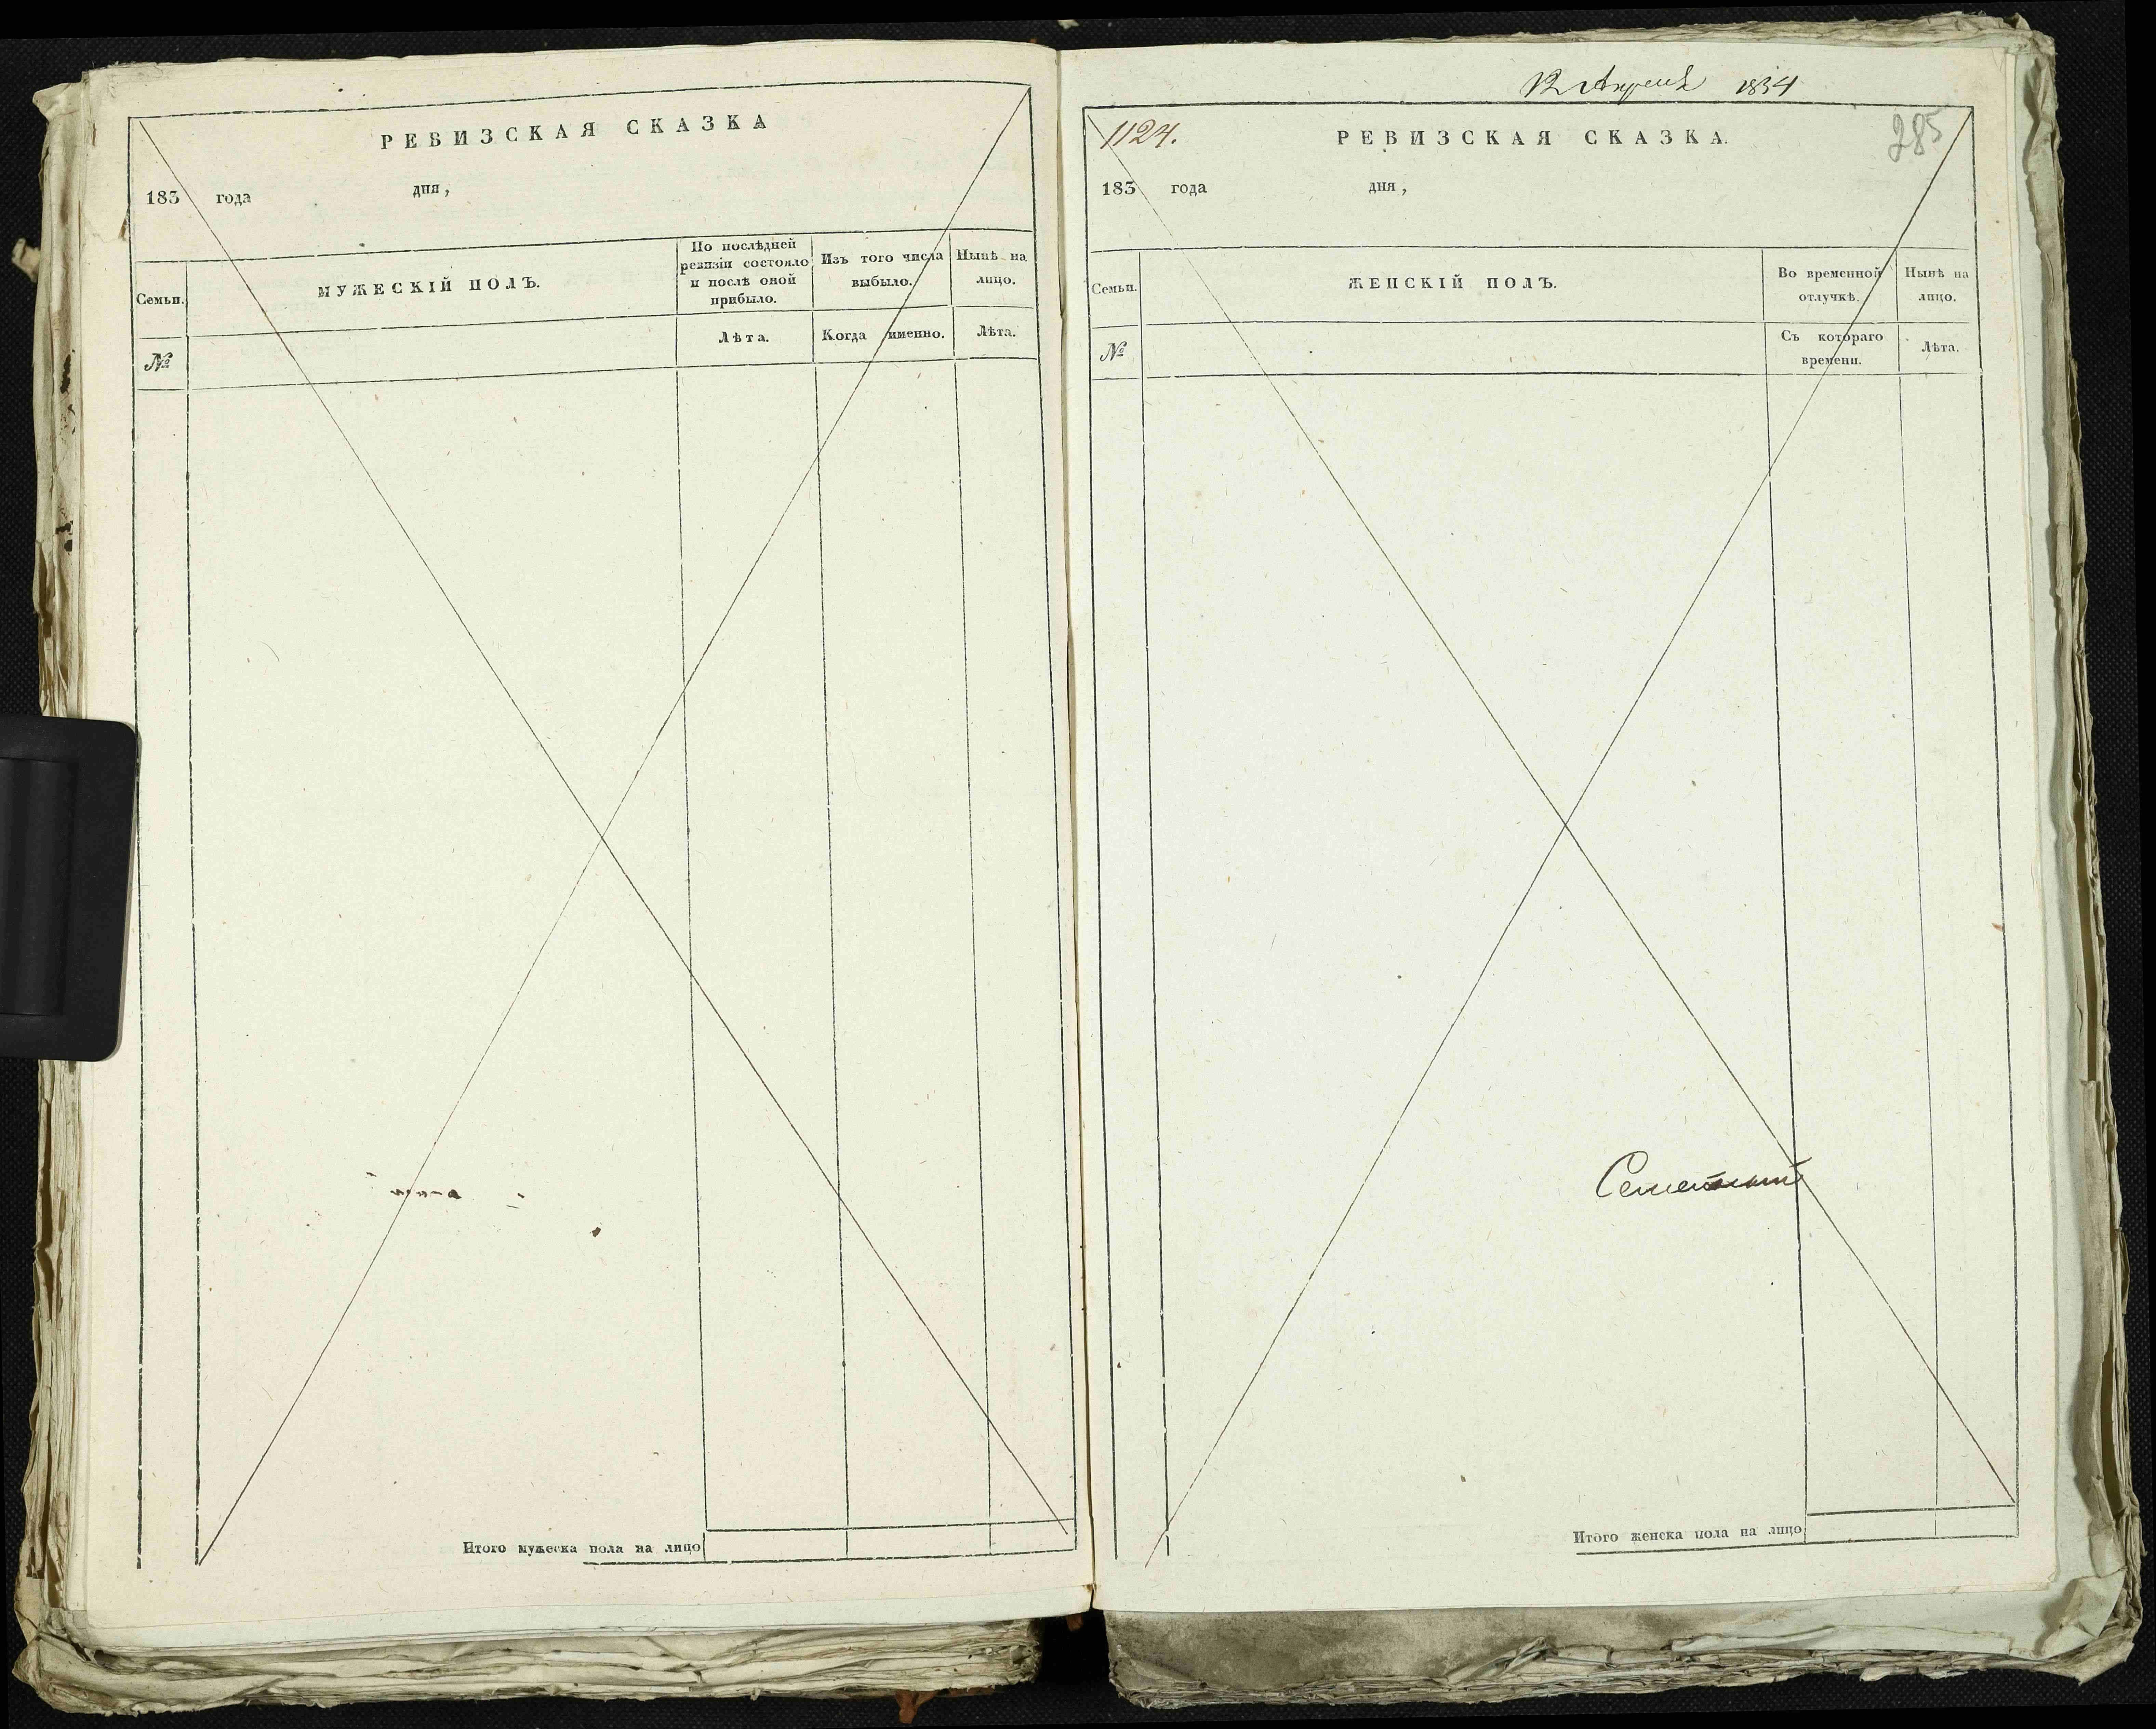 РЕВИЗСКАЯ СКАЗКА
183 года дня,
Семьи.
МУЖЕСКІЙ ПОЛЪ.
По послѣдней
ревизіи состояло
и послѣ оной
прибыло.
Изъ того числа
выбыло.
Нынѣ на
лицо.
№
Лѣта.
Когда именно.
Лѣта.
Итого мужеска пола на лицо
12 Апреля 1834
1124.
РЕВИЗСКАЯ СКАЗКА.
285
183 года дня,
Семьи.
ЖЕНСКІЙ ПОЛЪ.
Во временной
отлучкѣ.
Нынѣ на
лицо.
№
Съ котораго
времени.
Лѣта.
Итого женска пола на лицо